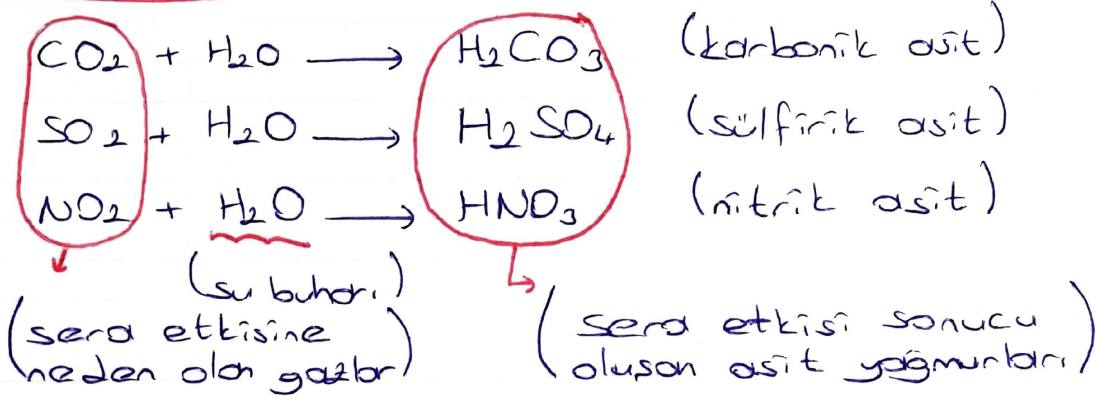 CO₂ + H₂O → H₂CO₃ (karbonik asit)
SO₂ + H₂O → H₂SO₄ (sülfirik asit)
NO₂ + H₂O → HNO₃ (nitrik asit)
(su buharı)
(sera etkisine
neden olan gazlar)
(sera etkisi sonucu
oluşan asit yağmurları)